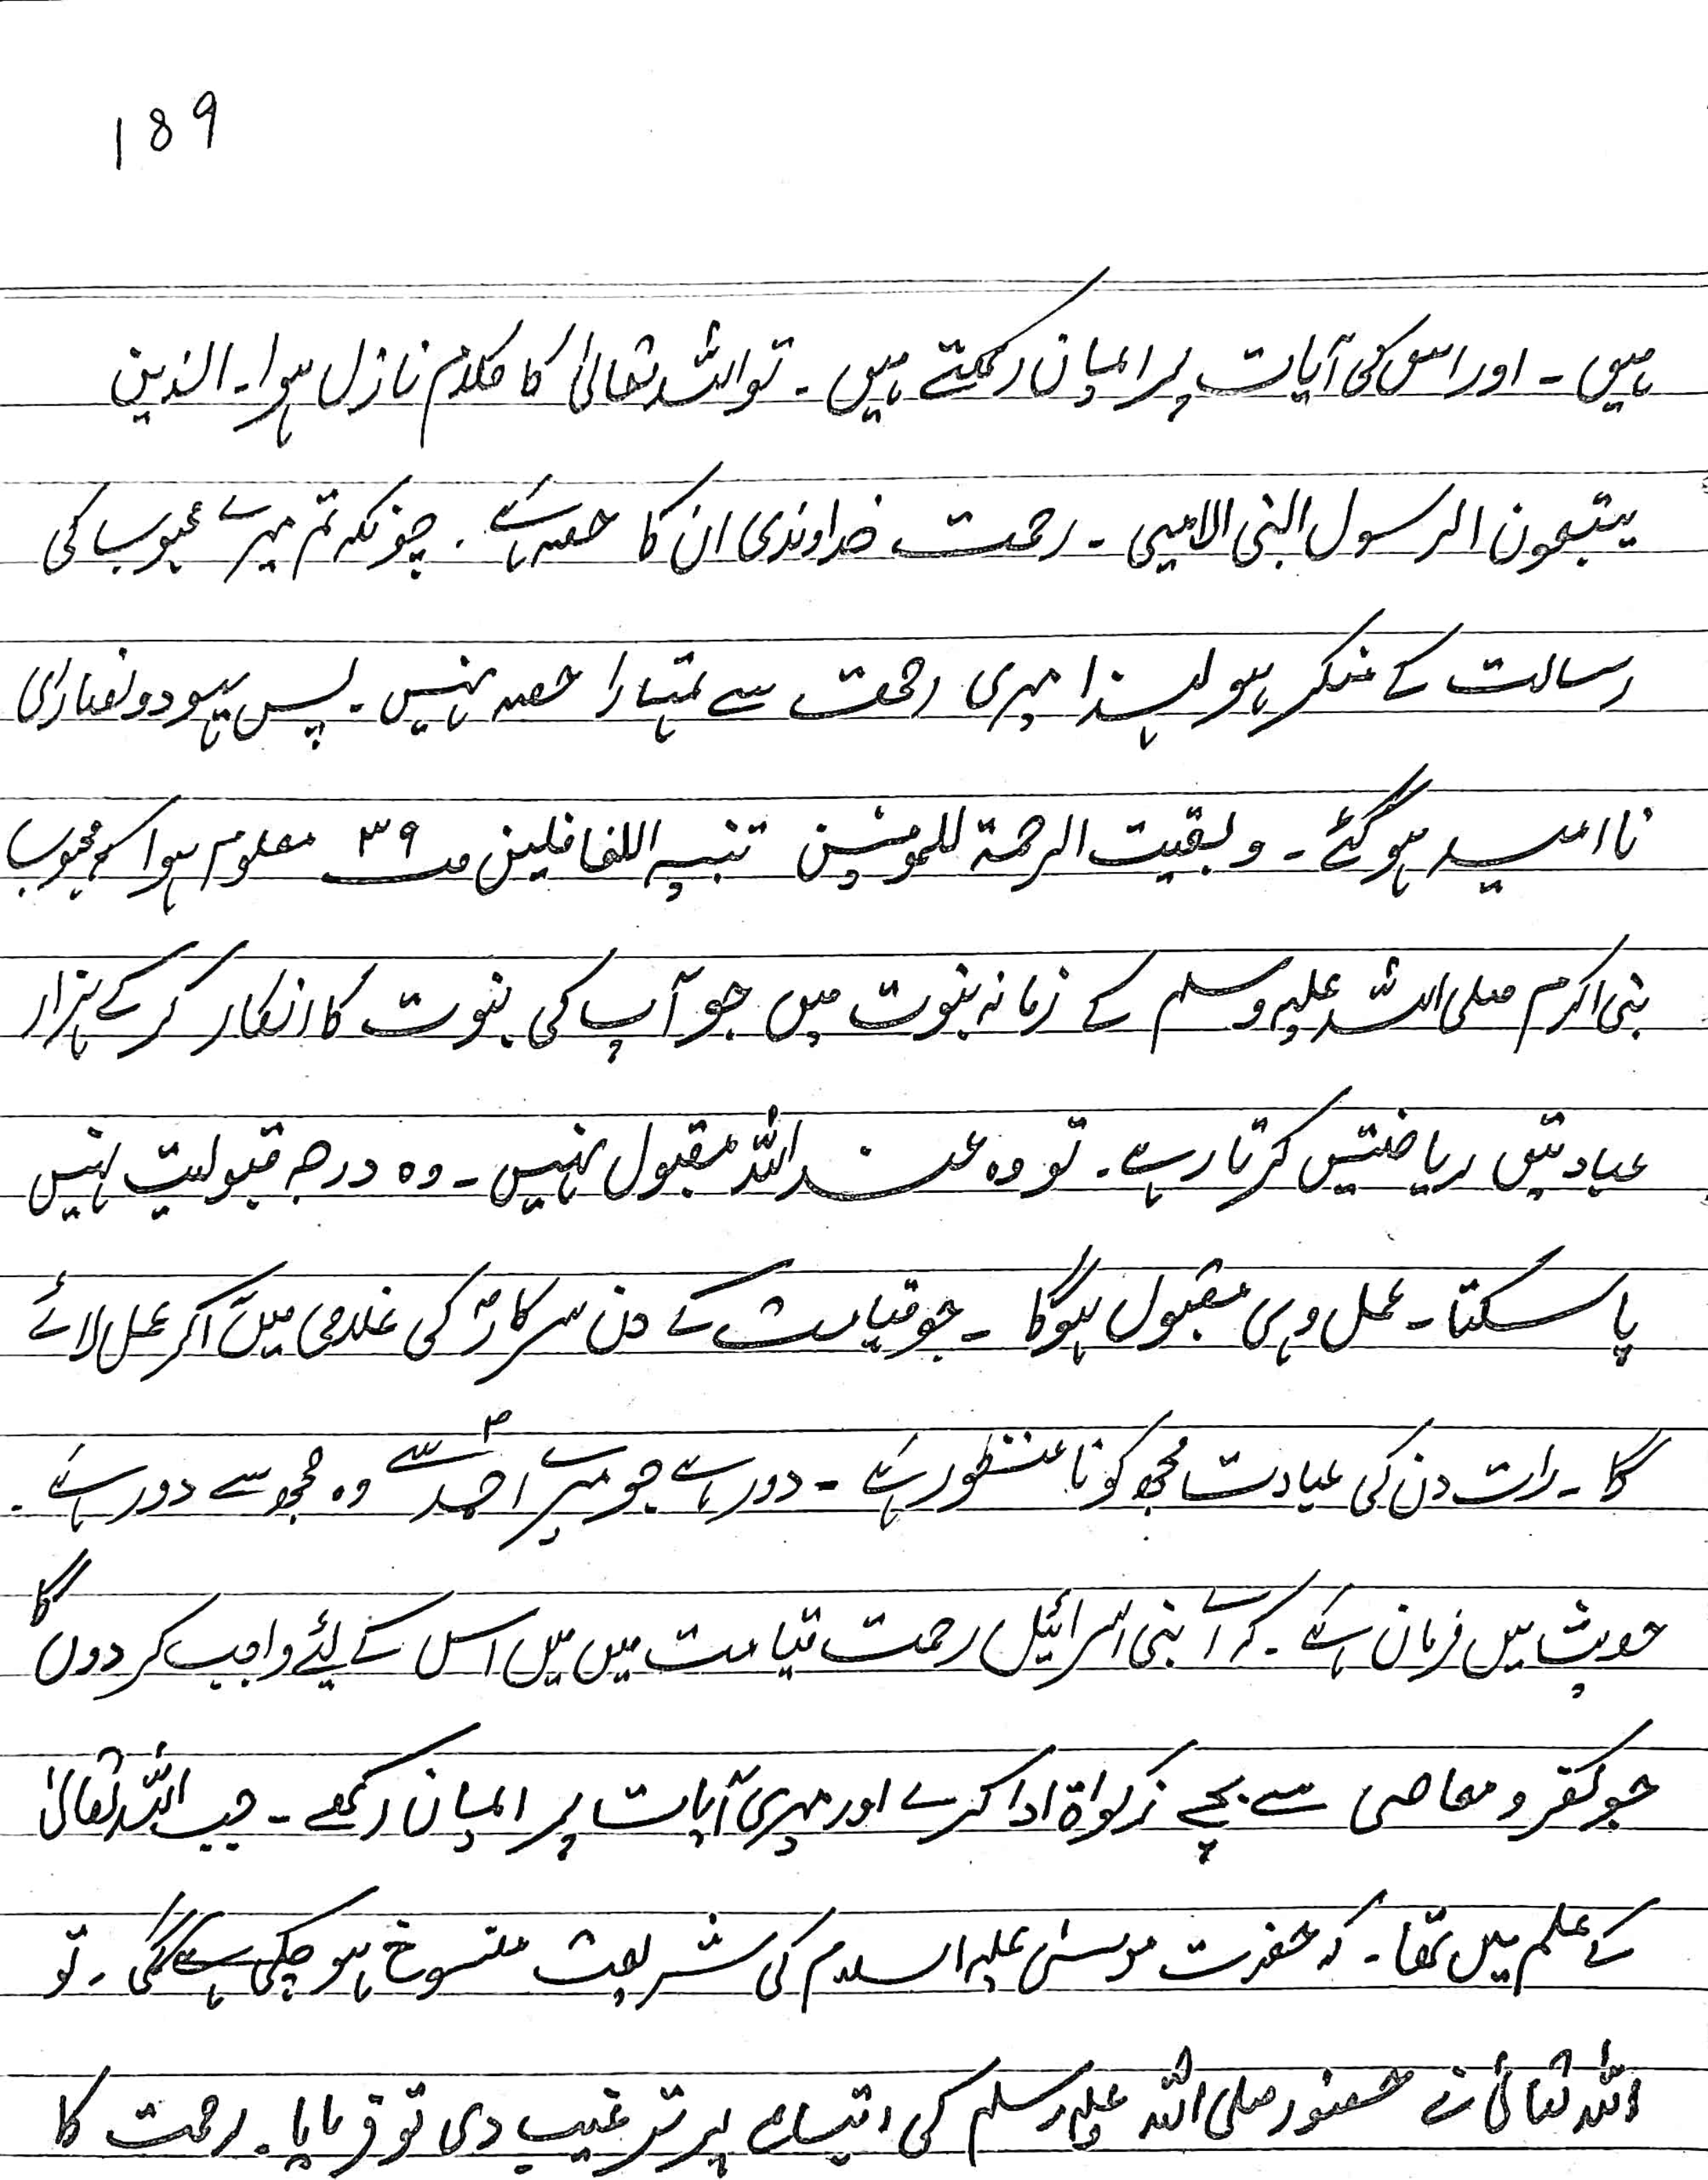 189
ہیں۔ اور اس کی آیات پر ایمان رکھتے ہیں۔ تو اللہ تعالیٰ کا کلام نازل ہوا۔ الذین
یتبعون الرسول النبی الامیی۔ رحمت خداوندی ان کا حصہ ہے۔ چونکہ تم میرے محبوب کی
رسالت کے منکر ہو لہذا میری رحمت سے تمہارا حصہ نہیں۔ پس یہود و نصاریٰ
نا امید ہو گئے۔ و بقیت الرحمۃ للمومنین تنبیہ اللغافلین صـ ۳۹ معلوم ہوا کہ محبوب
نبی اکرم صلی اللہ علیہ وسلم کے زمانہ نبوت میں جو آپ کی نبوت کا انکار کر کے ہزار
عبادتیں ریاضتیں کرتا رہے۔ تو وہ عند اللہ مقبول نہیں۔ وہ درجہ قبولیت نہیں
پا سکتا۔ عمل وہی مقبول ہوگا۔ جو قیامت کے دن سرکارؐ کی غلامی میں آکر عمل لائے
گا۔ رات دن کی عبادت مجھ کو نا منظور ہے۔ دور ہے جو میرے احمدؐ سے وہ مجھ سے دور ہے۔
حدیث میں فرمان ہے۔ کہ اے بنی اسرائیل رحمت قیامت میں میں اس کے لئے واجب کر دوں گا
جو کفر و معاصی سے بچے زکواۃ ادا کرے اور میری آیات پر ایمان رکھے۔ جب اللہ تعالیٰ
کے علم میں تھا۔ کہ حضرت موسیٰ علیہ السلام کی شریعت منسوخ ہو چکی ہے گی۔ تو
اللہ تعالیٰ نے حضور صلی اللہ علیہ وسلم کی اتباع پر ترغیب دی تو فرمایا۔ رحمت کا